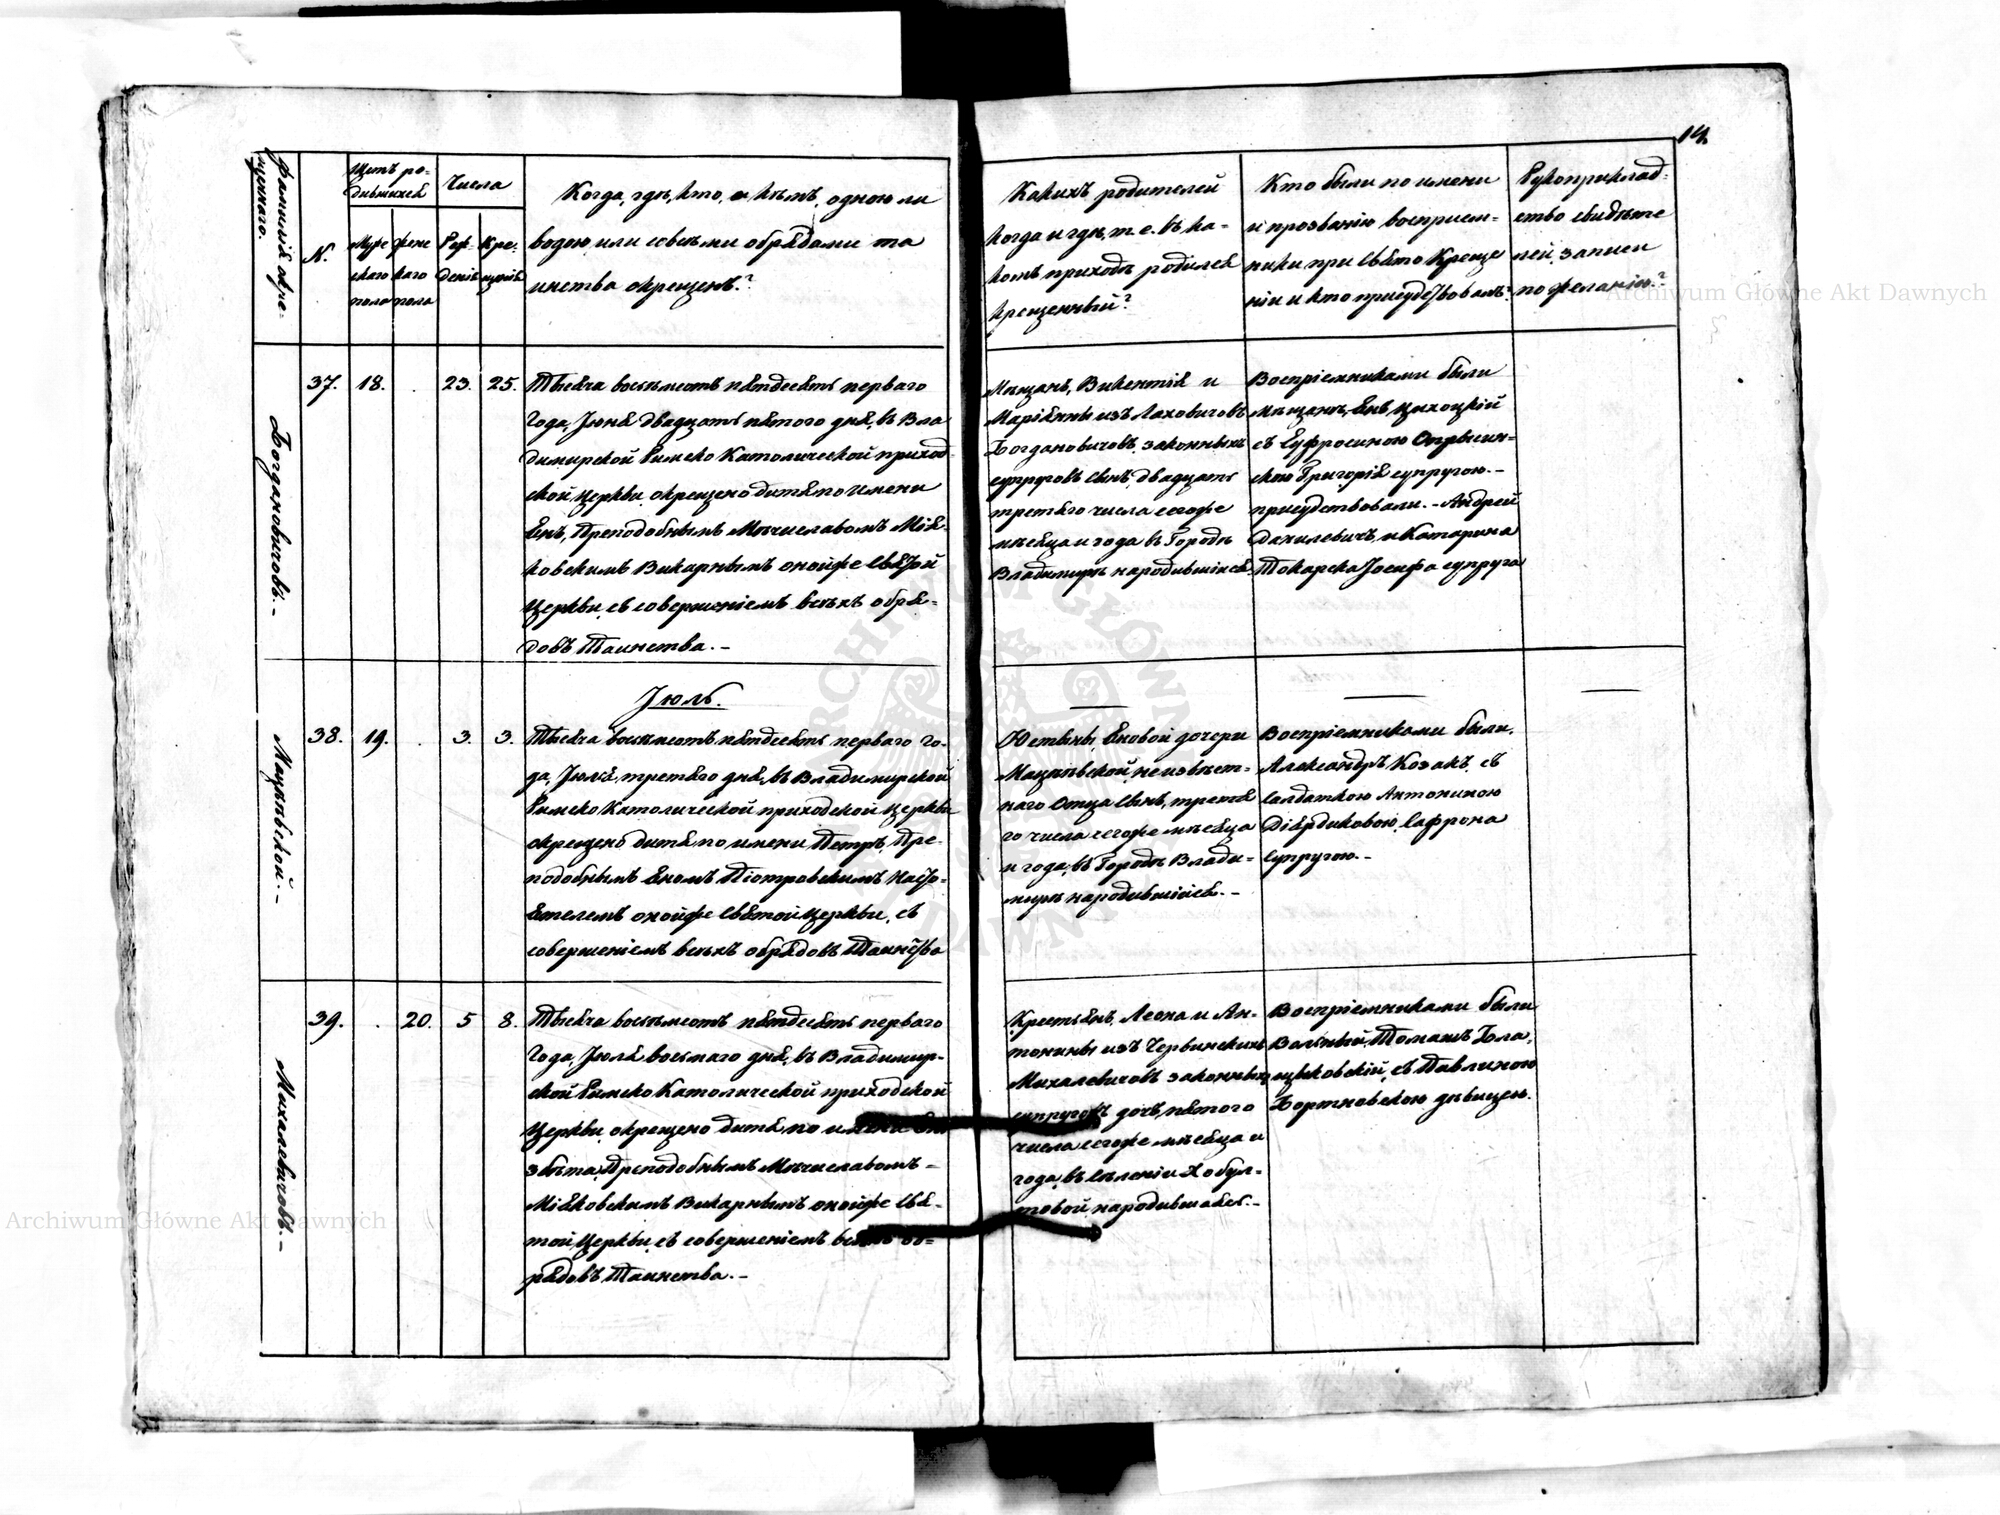 14.
Фамилія кре-
щенаго.
N.
Щетъ ро-
дившихся
Муже
скаго
пола
жене
каго
пола
Числа
Рож-
деніе
Кре-
щеніе
Когда, где, кто, и кѣмъ, одною ли
водою, или совсѣми обрядами та
инства окрещенъ?
Какихъ родителей
когда и где, т. е. въ ка-
комъ приходѣ родился
крещенный?
Кто были по имени
и прозванію восприем-
ники при Свято Креще
ніи и кто присудствовалъ?
Рукоприклад-
ство свидѣте
лей записи
по желанію?
Богдановичовъ.-
37.
18.
23.
25.
Тысяча восемьсотъ пятдесятъ перваго
Года, Іюня двадцать пятого дня, въ Вла
димирской Римско Католической приход-
ской Церкви, окрещено дитя по имени
Янъ, Преподобнымъ Мѣчиславомъ Мія-
ковскимъ Викарнымъ онойже Святой
Церкви, съ совершеніемъ всѣхъ обря-
довъ Таинства.-
Мѣщанъ, Викентія и
Маріянны изъ Лаховичовъ
Богдановичовъ, законныхъ
супруговъ сынъ, двадцать
третяго числа сегоже
мѣсяца и года въ Городѣ
Владимирѣ народившійся.
Воспріемниками были
Мѣщанъ, Янъ Цихоцкій
съ Еуфросиною Опрысин-
скою Григорія супругою.-
присудствовали.- Андрей
Данилевичъ, и Катарина
Токарска Іосифа супруга
Іюль.
Мацѣвской.-
38.
19.
3.
3.
Тысяча восемьсотъ пятдесятъ перваго го-
да, Іюля, третяго дня, въ Владимирской
Римско Католической приходской Церкви
окрещено дитя по имени Петръ, Пре-
подобнымъ Яномъ Піотровскимъ Насто-
ятелемъ онойже Святой Церкви, съ
совершеніемъ всѣхъ обрядовъ Таинства
Юстыны, Яновой дочери
Мацѣвской, неизвѣст-
наго Отца сынъ, третя
го числа сегоже мѣсяца
и года, въ Городѣ Влади-
мирѣ народившійся.-
Воспріемниками были,
Александръ Козакъ, съ
Салдаткою Антониною
Діярдиковою, Сафрона
супругою.-
Михалевичовъ.-
39.
20.
5
8.
Тысяча восемьсотъ пятдесятъ перваго
Года, Іюля восьмаго дня, въ Владимир-
ской Римско Католической приходской
Церкви, окрещено дитя, по имени
збѣта, Преподобнымъ Мѣчиславомъ-
Міяковскимъ Викарнымъ онойже Свя-
той Церкви, съ совершеніемъ всѣхъ об-
рядовъ Таинства.-
Крестьянъ, Леона и Ан-
тонины изъ Червинскихъ
Михалевичовъ законныхъ
супруговъ дочь, пятого
числа сегоже мѣсяца и
года, въ Селеніи Хобул-
товой народившаяся.-
Воспріемниками были
Вольный, Томашъ Гола,
щековскій, съ Павлиною
Бортновскою дѣвицею.
Archiwum Główne Akt Dawnych
Archiwum Główne Akt Dawnych
ARCHIWUM GŁÓWNE AKT DAWNYCH